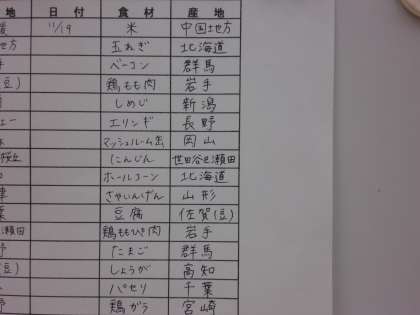 地 日付 食材 産地
11/19 米 中国地方
地方 玉ねぎ 北海道
ベーコン 群馬
豆) 鶏もも肉 岩手
しめじ 新潟
エリンギ 長野
マッシュルーム缶 岡山
桜丘 にんじん 世田谷区瀬田
ホールコーン 北海道
さやいんげん 山形
豆腐 佐賀(豆)
瀬田 鶏ももひき肉 岩手
野 たまご 群馬
豆) しょうが 高知
パセリ 千葉
野 鶏ガラ 宮崎